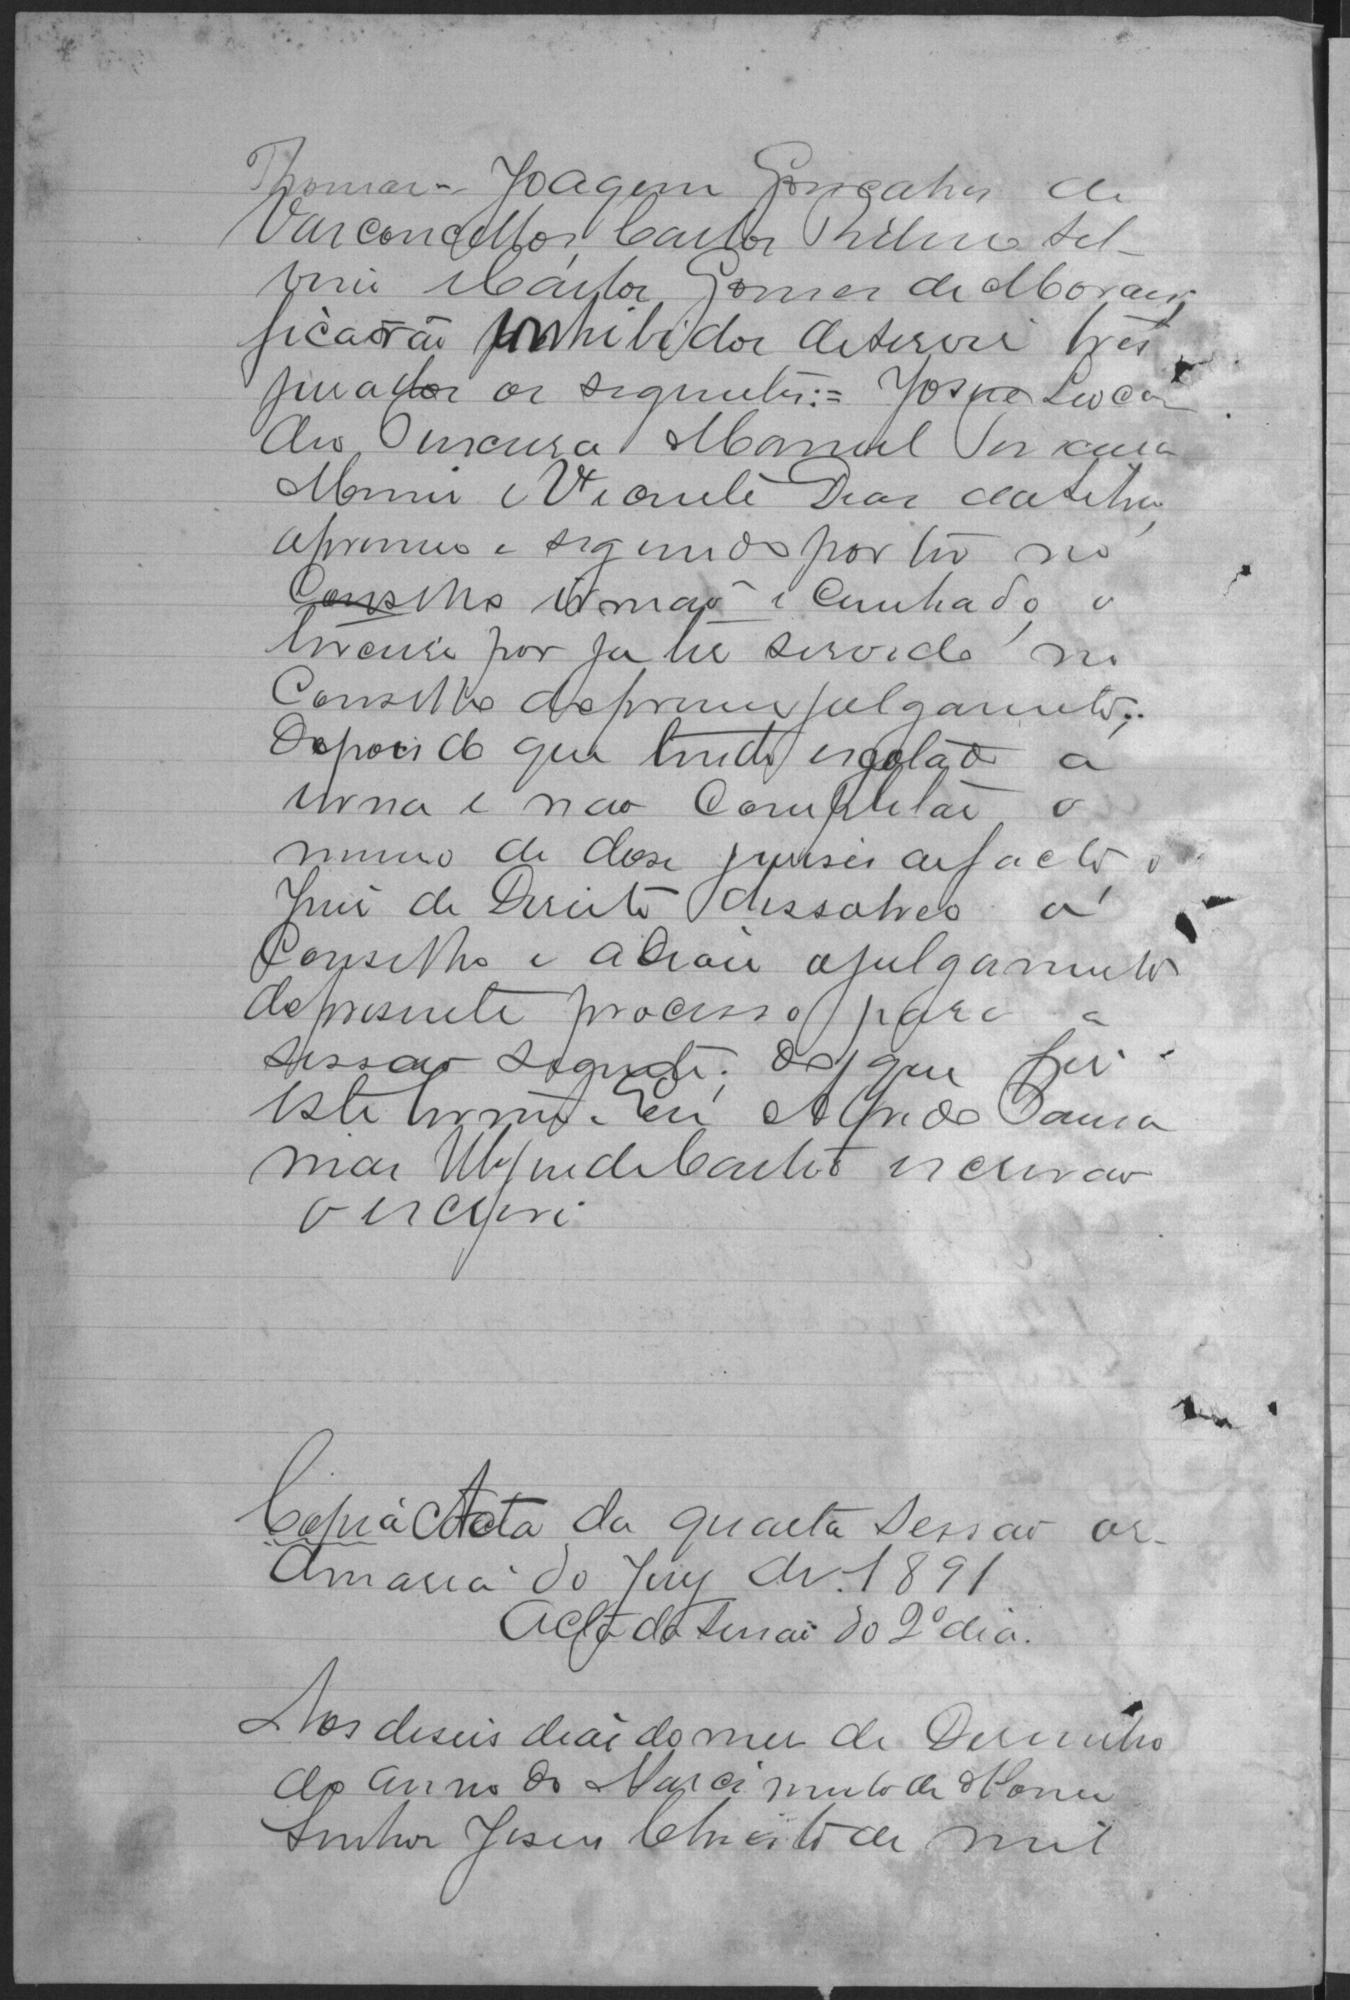 Thomas - Joaquim Gonçalves de
Vasconcellos, Carlos Ribeiro
Carlos Gomes de Moraes,
ficarão prohibidos de servir tres
jurados os seguintes:= Leoca
dio Pereira Manoel Pereira
e Vicente Dias da Silva,
o primeiro e segundo por ter no
Conselho irmão e cunhado, o
terceiro por ja ter servido no
Conselho do primeiro julgamento;
Depois de que tendo esgotado a
urna e nao Completado o
numero de dose juises de facto, o
Juis de Direito dissolveo o
Conselho e adiou o julgamento
do presente processo para a
sessao seguinte; Do que fis
este termo. Eu Alfredo
de Castro escrivao
o escrevi
Copia Acta da quarta Sessao or-
dinaria do Jury de 1891
Acta da Sessão do 2º dia.
Aos deseis dias do mes de Desembro
do anno do Nascimento de Nosso
Senhor Jesus Christo de mil